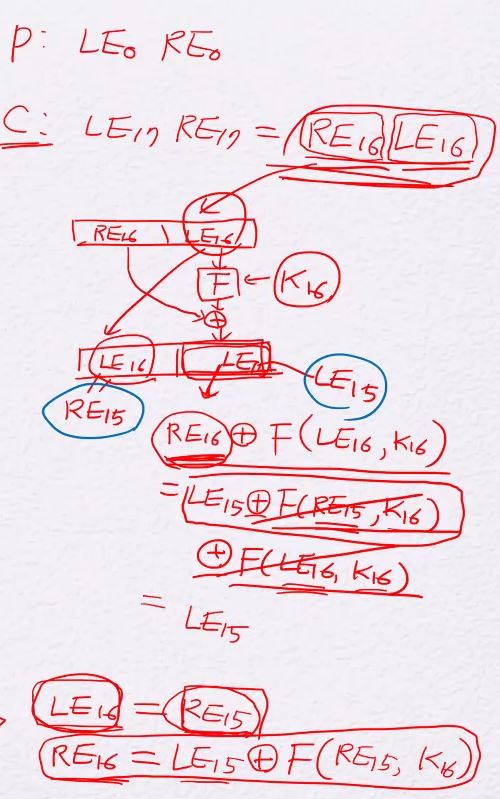 P: LE₀ RE₀
C: LE₁₇ RE₁₇ = RE₁₆ LE₁₆
RE₁₆ LE₁₆
F ← K₁₆
⊕
LE₁₆ LE
RE₁₅ LE₁₅
RE₁₆ ⊕ F(LE₁₆, K₁₆)
= LE₁₅ ⊕ F(RE₁₅, K₁₆)
⊕ F(LE₁₆, K₁₆)
= LE₁₅
LE₁₆ = RE₁₅
RE₁₆ = LE₁₅ ⊕ F(RE₁₅, K₁₆)